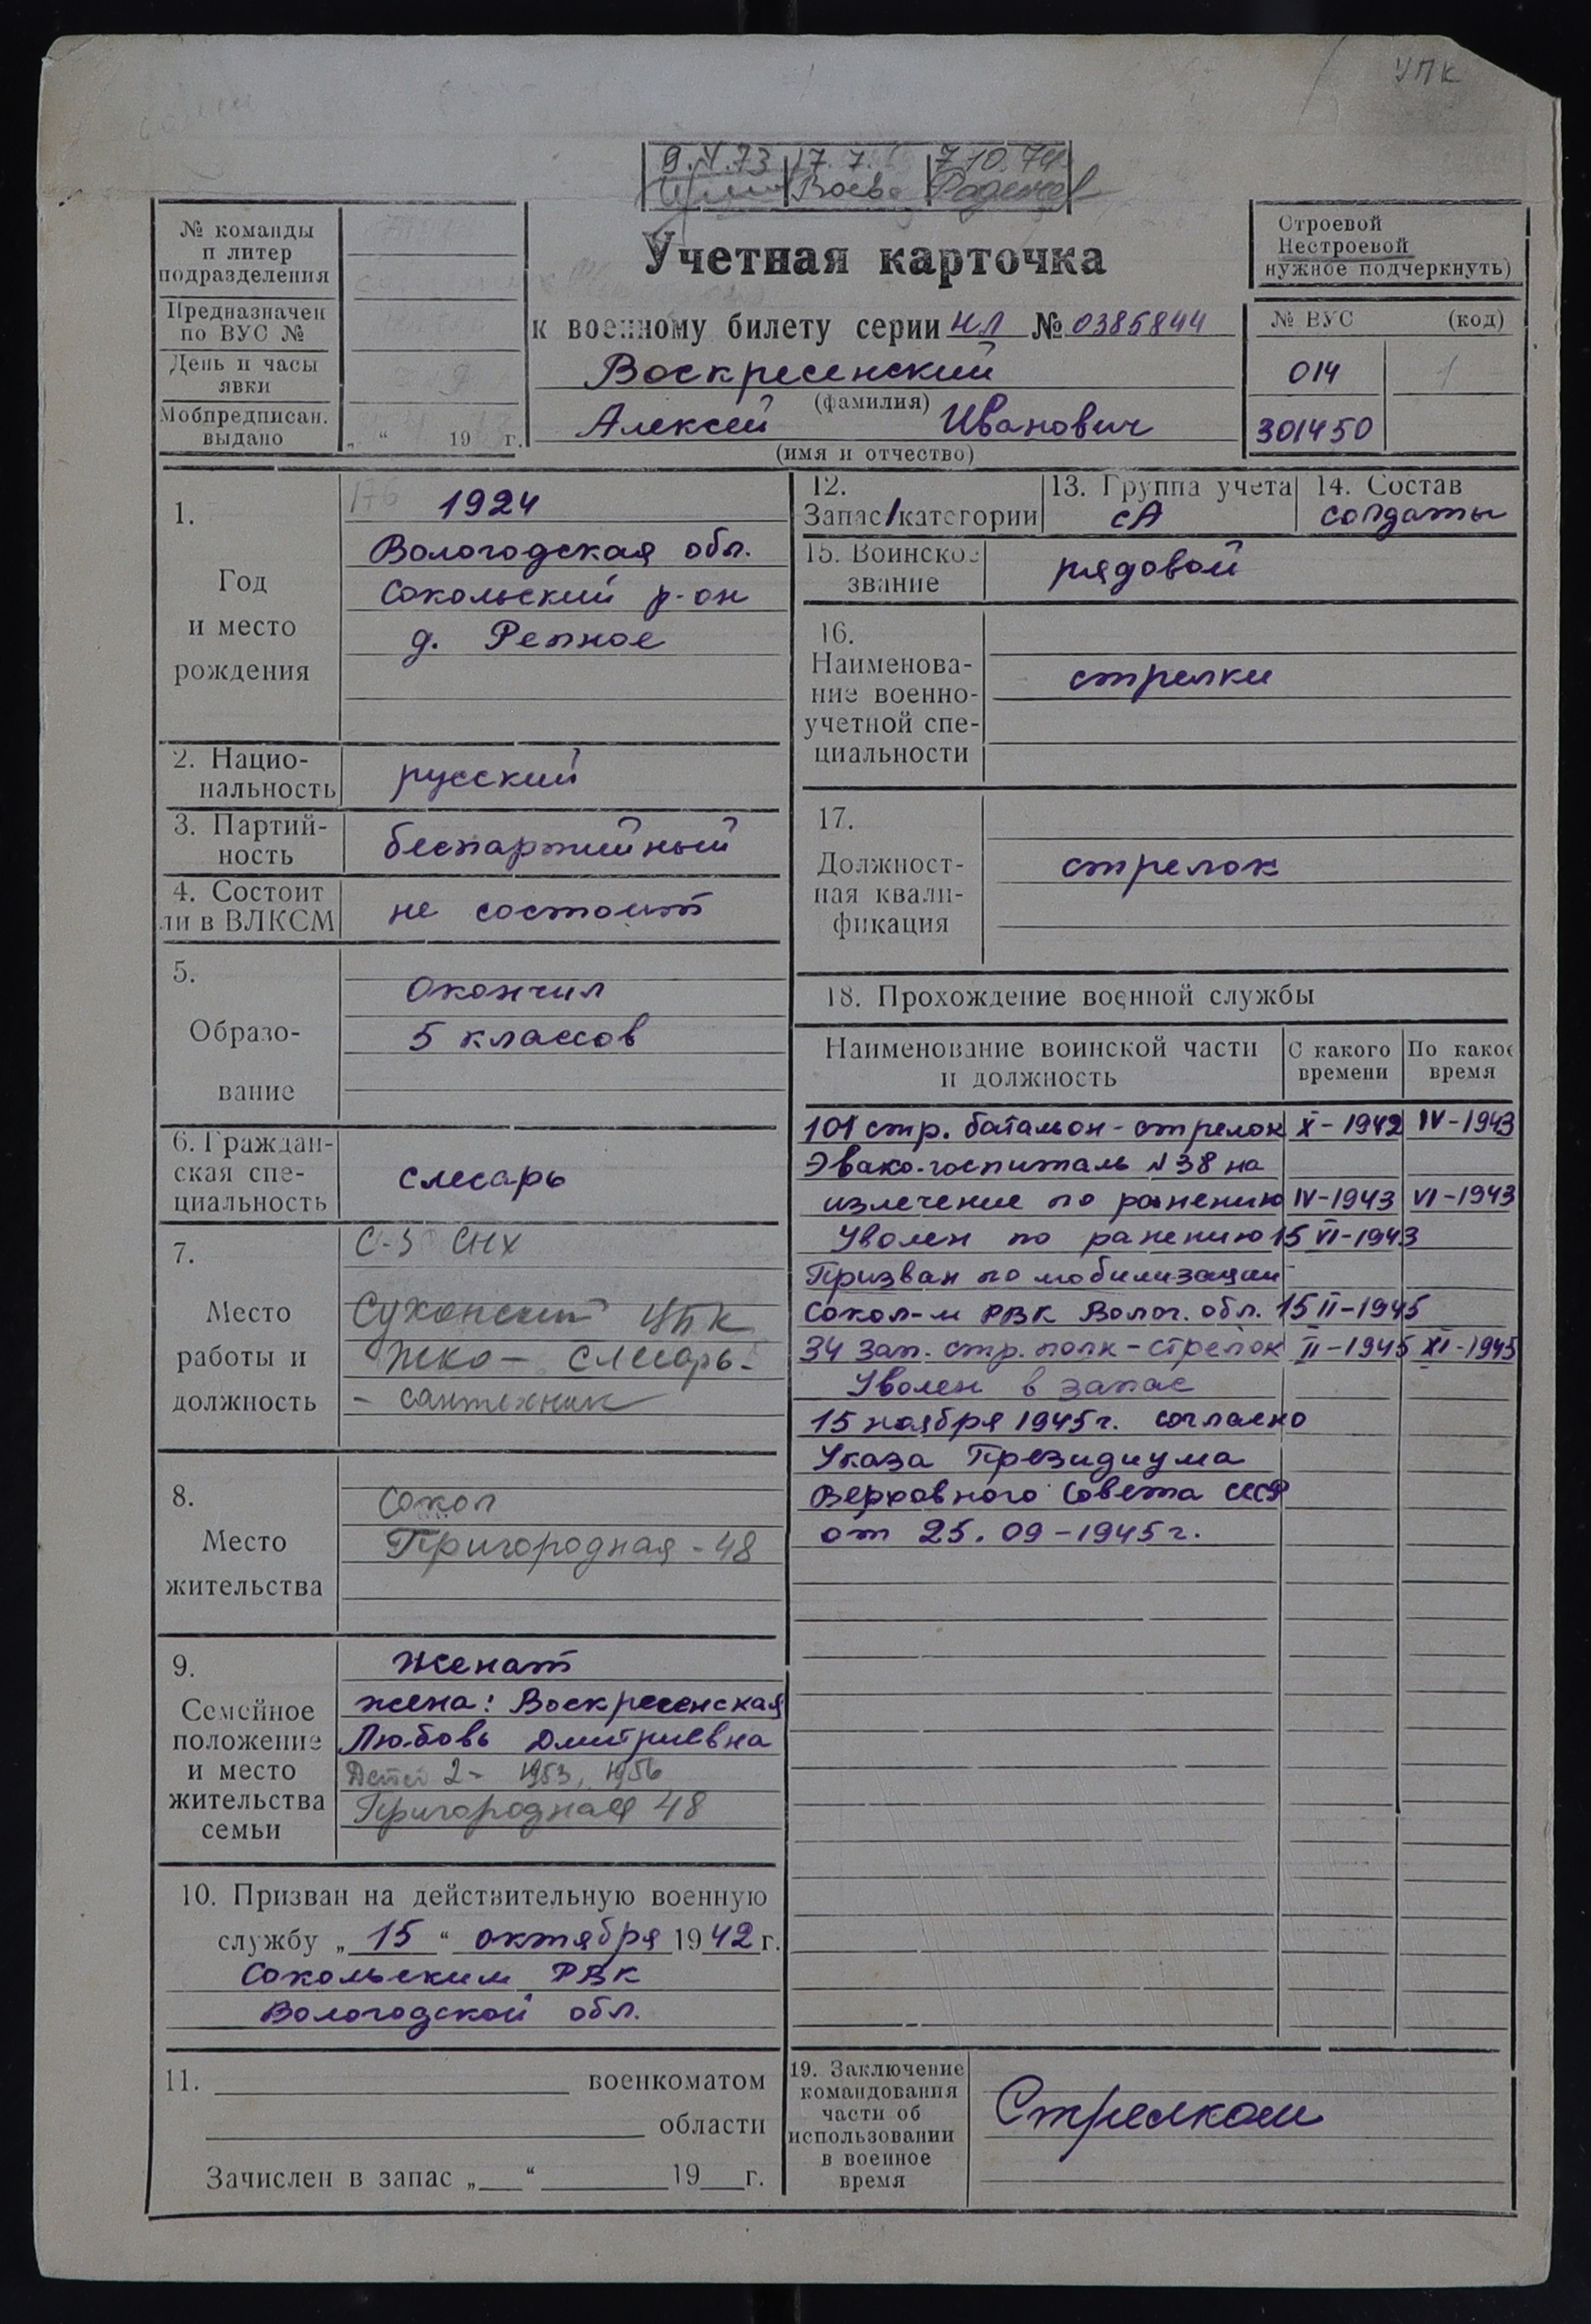 УПК
9.4.73 17.7. 7.10.74
№ команды
и литер
подразделения
Предназначен
по ВУС №
День и часы
явки
Мобпредписан.
выдано „ “ 19 г.
Учетная карточка
к военному билету серии НЛ № 0385844
Воскресенский
(фамилия)
Алексей Иванович
(имя и отчество)
Строевой
Нестроевой
нужное подчеркнуть)
№ ВУС (код)
014 1
301450
1. Год и место рождения
176 1924
Вологодская обл.
Сокольский р-он
д. Репное
2. Нацио-
нальность русский
3. Партий-
ность беспартийный
4. Состоит
ли в ВЛКСМ не состоит
5. Образо-
вание
Окончил
5 классов
6. Граждан-
ская спе-
циальность слесарь
7. Место
работы и
должность
С-З СНХ
Сухонский ЦБК
ЖКО – слесарь-
- сантехник
8. Место
жительства
Сокол
Пригородная - 48
9. Семейное
положение
и место
жительства
семьи
Женат
жена: Воскресенская
Любовь Дмитриевна
Детей 2 - 1953, 1956
Пригородная 48
10. Призван на действительную военную
службу „ 15 “ октября 1942 г.
Сокольским РВК
Вологодской обл.
11. военкоматом
области
Зачислен в запас „ “ 19 г.
12.
Запас/категории
13. Группа учета
СА
14. Состав
солдаты
15. Воинское
звание рядовой
16.
Наименова-
ние военно-
учетной спе-
циальности
стрелки
17.
Должност-
ная квали-
фикация
стрелок
18. Прохождение военной службы
Наименование воинской части
и должность
С какого
времени
По какое
время
101 стр. батальон - стрелок X - 1942 IV - 1943
Эвако-госпиталь №38 на
излечение по ранению IV - 1943 VI - 1943
Уволен по ранению 15 VI - 1943
Призван по мобилизации
Сокол-м РВК Волог. обл. 15 II - 1945
34 зап. стр. полк - стрелок II - 1945 XI - 1945
Уволен в запас
15 ноября 1945 г. согласно
Указа Президиума
Верховного Совета СССР
от 25.09 - 1945 г.
19. Заключение
командования
части об
использовании
в военное
время
Стрелком